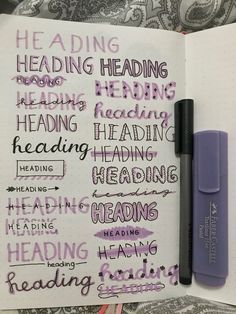 HEADING
HEADING
HEADING
HEADING
heading
HEADING
heading
HEADING
HEADING
HEADING
HEADING
HEADING
HEADING
heading
heading
HEADING
HEADING
HEADING
heading
HEADING
HEADING
heading
HEADING
heading
HEADING
HEADING
HEADING
heading
heading
FABER-CASTELL